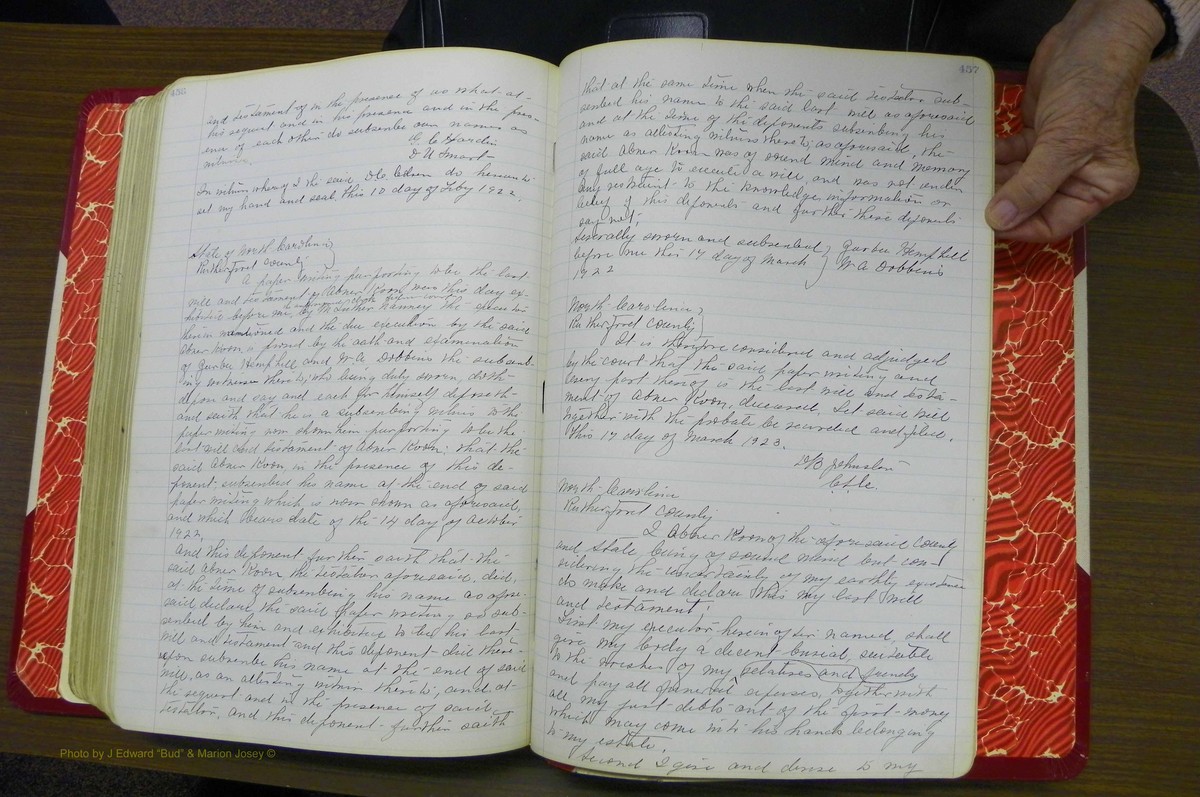 456
and testament of in the presence of us who at
his request and in his presence and in the pres-
ence of each other do subscribe our names as
witness.
C. C. Hardin
D. N. Smart
In witness whereof I the said do hereunto
set my hand and seal this 10 day of Feby 1922.
State of North Carolina
Rutherford County
A paper writing purporting to be the last
will and testament of Abner Koon, was this day ex-
hibited before me, by the executor
therein mentioned and the due execution by the said
Abner Koon is proved by the oath and examination
of Gurber Hemphill and W. A. Dobbins the subscrib-
ing witnesses thereto, who being duly sworn, doth
depose and say and each for himself deposeth
and saith that he is a subscribing witness to the
paper writing now shown him purporting to be the
last will and testament of Abner Koon; that the
said Abner Koon, in the presence of this de-
ponent, subscribed his name at the end of said
paper writing which is now shown as aforesaid,
and which bears date of the 14 day of October
1922.
And this deponent further saith that the
said Abner Koon the testator aforesaid, did,
at the time of subscribing his name as afore-
said declare the said paper writing so sub-
scribed by him and exhibited to be his last
will and testament and this deponent did there-
upon subscribe his name at the end of said
will, as an attesting witness thereto, and at
the request and in the presence of said
testator, and this deponent further saith
457
that at the same time when the said testator sub-
scribed his name to the said last will as aforesaid
and at the time of the deponents subscribing his
name as attesting witness thereto, as aforesaid, the
said Abner Koon was of sound mind and memory
of full age to execute a will, and was not under
any restraint to the knowledge, information or
belief of this deponents and further these deponents
say not.
Severally sworn and subscribed
before me this 17 day of March
1922
Gurber Hemphill
W. A. Dobbins
North Carolina
Rutherford County
It is therefore considered and adjudged
by the court that the said paper writing and
every part thereof is the last will and testa-
ment of Abner Koon, deceased. Let said will
together with the probate be recorded and filed.
This 17 day of March 1923.
D/B Johnston
C.S.C.
North Carolina
Rutherford County
I Abner Koon of the aforesaid county
and State being of sound mind but con-
sidering the uncertainty of my earthly existence
do make and declare this my last will
and testament!
First my executor hereinafter named, shall
give my body a decent burial, suitable
to the wishes of my relatives and friends
and pay all funeral expenses, together with
all my just debts out of the first money
which may come into his hands belonging
to my estate.
Second I give and devise to my
Photo by J Edward "Bud" & Marion Josey ©